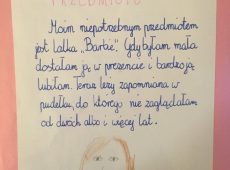 PRZEDMIOTU
Moim niepotrzebnym przedmiotem
jest lalka „Barbi". Gdy byłam mała
dostałam ją w prezencie i bardzo ją
lubiłam. Teraz leży zapomniana w
pudełku, do którego nie zaglądałam
od dwóch albo i więcej lat.